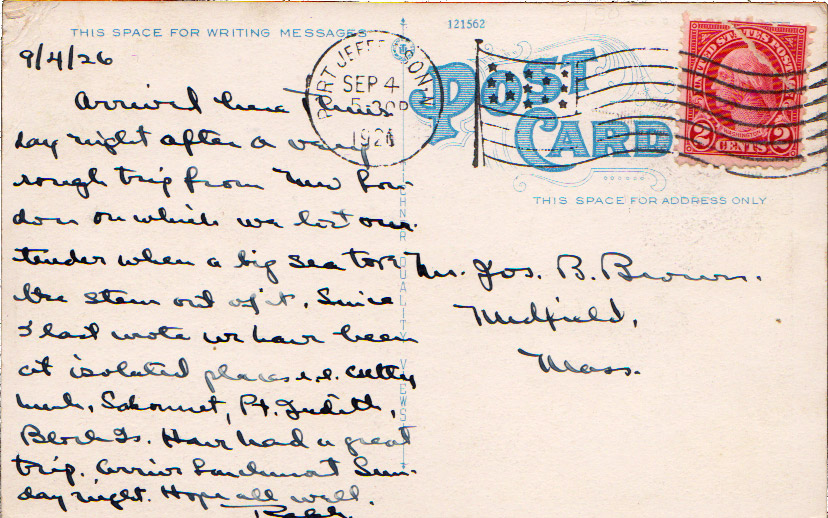 THIS SPACE FOR WRITING MESSAGES
121562
9/4/26
Arrived here Thurs
day night after a very
rough trip from New Lon-
don on which we lost our
tender when a big sea tore
the stem out of it. Since
I last wrote we have been
at isolated places i.e. Cutty
hunk, Sakonnet, Pt. Judith,
Block Is. Have had a great
trip. Arrive Larchmont Sun-
day night. Hope all well.
Ralph.
PORT JEFFERSON, N
SEP 4
5:30P
1926
POST
CARD
UNITED STATES POSTAGE
WASHINGTON
2 CENTS 2
THIS SPACE FOR ADDRESS ONLY
Mr. Jos. B. Brown.
Medfield,
Mass.
QUALITY VIEWS